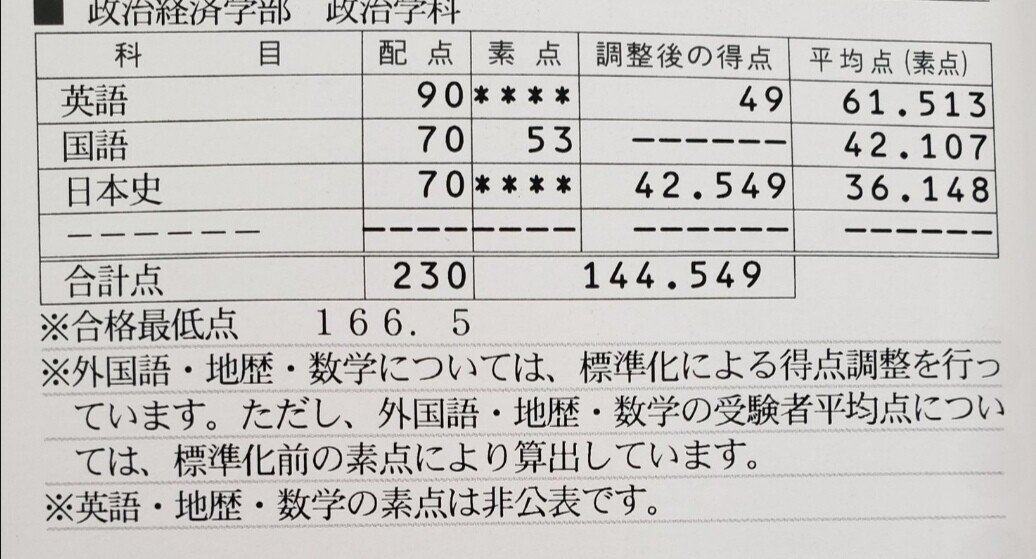 ■ 政治経済学部 政治学科
科 目 配 点 素 点 調整後の得点 平均点(素点)
英語 90 **** 49 61.513
国語 70 53 ------ 42.107
日本史 70 **** 42.549 36.148
------ ---- ---- ------ ------
合計点 230 144.549
※合格最低点 166.5
※外国語・地歴・数学については、標準化による得点調整を行っ
ています。ただし、外国語・地歴・数学の受験者平均点につい
ては、標準化前の素点により算出しています。
※英語・地歴・数学の素点は非公表です。